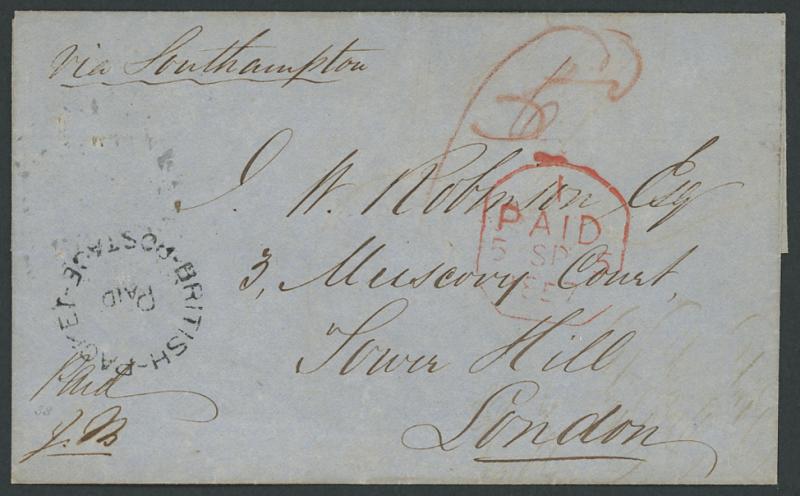 via Southampton
J. W. Robinson Esq
3, Muscovy Court,
Tower Hill
London
PAID
5 SP 5
1857
BRITISH-PACKET-POSTAGE-
PAID
Paid
J.B
38